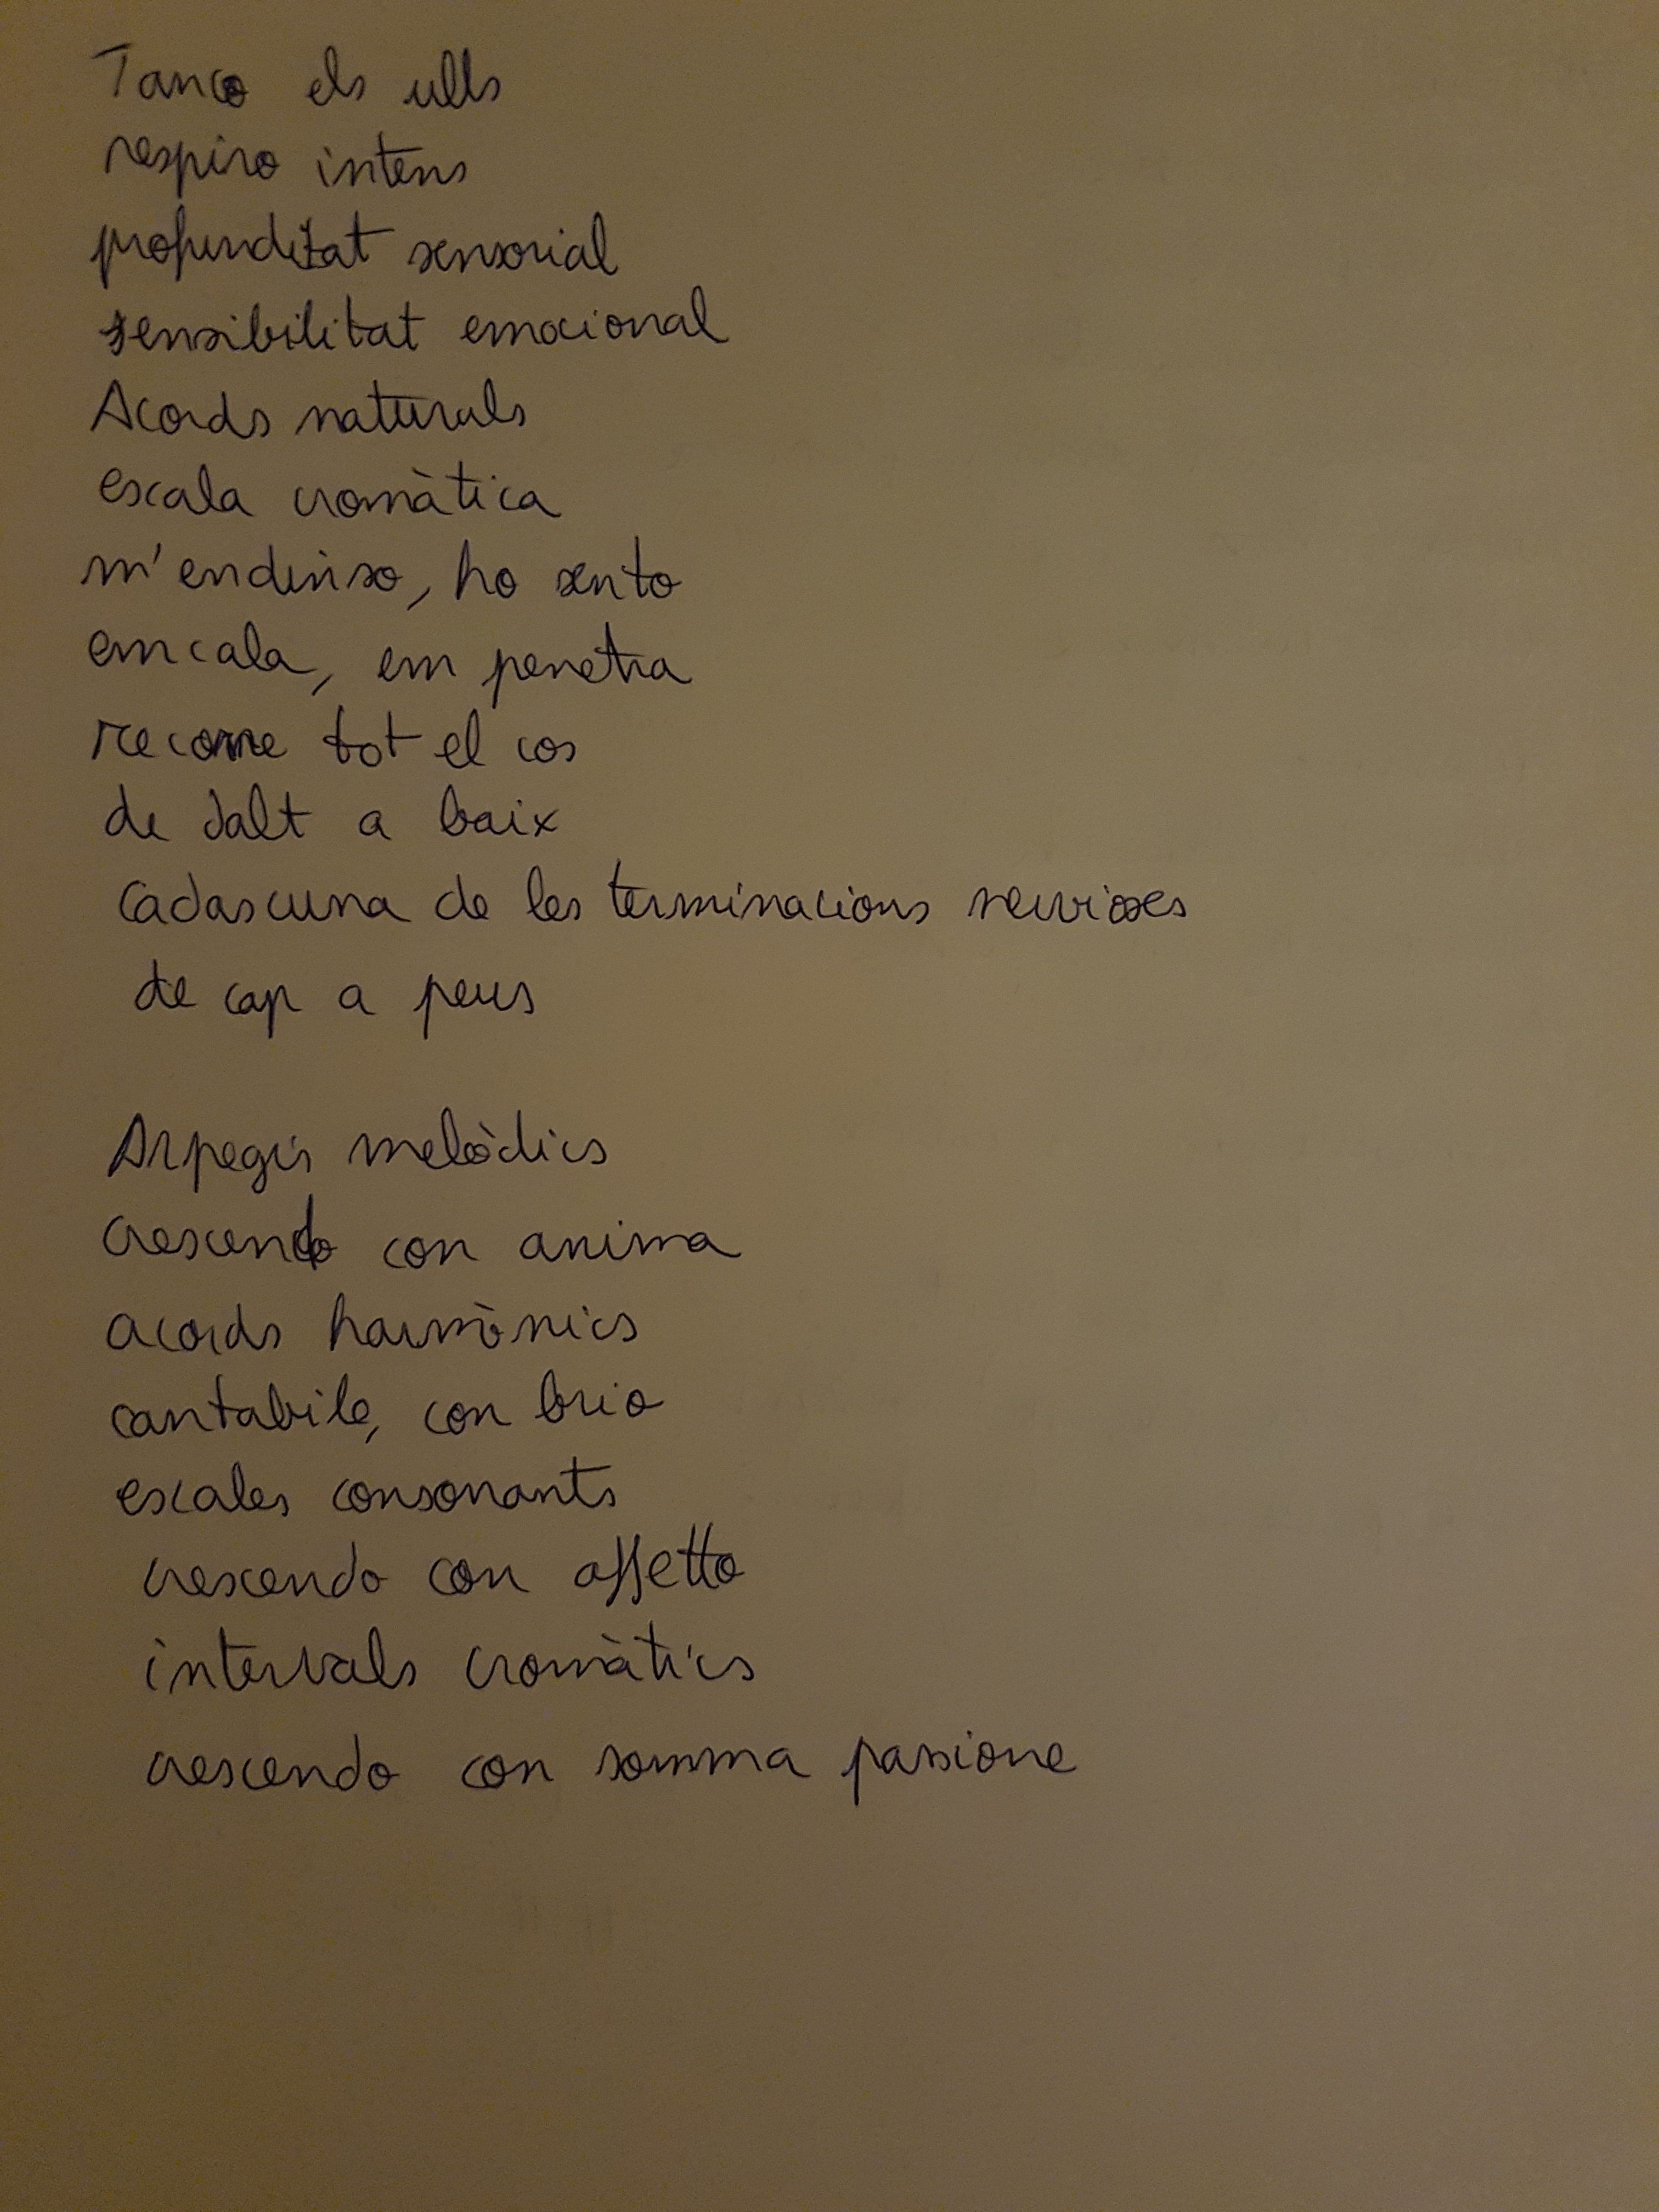 Tanco els ulls
respiro intens
profunditat sensorial
sensibilitat emocional
Acords naturals
escala cromàtica
m'endinso, ho sento
em cala, em penetra
recorre tot el cos
de dalt a baix
Cadascuna de les terminacions nervioses
de cap a peus
Arpegis melòdics
Crescendo con anima
acords harmònics
cantabile, con brio
escales consonants
crescendo con affetto
intervals cromàtics
crescendo con somma passione